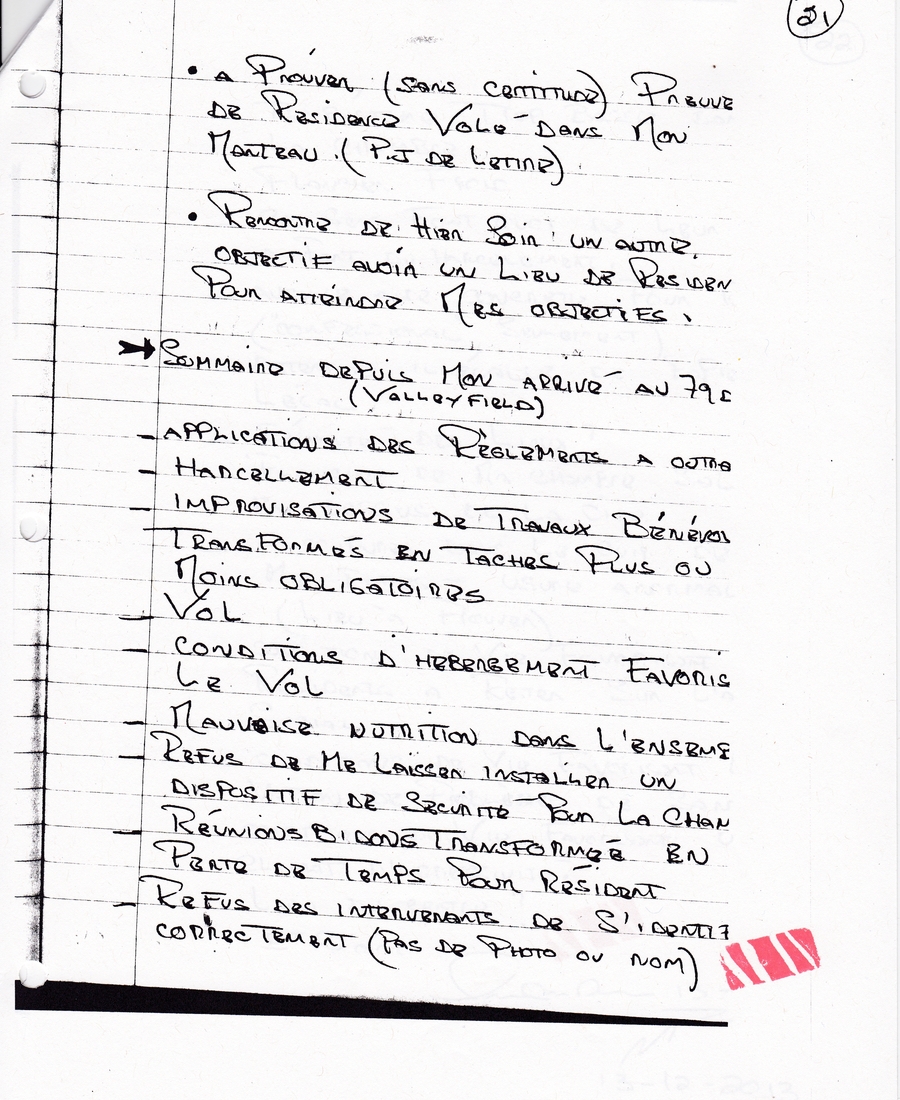 21
• A PROUVER (SANS CERTITUDE) PREUVE
DE RESIDENCE VOLÉ DANS MON
MANTEAU. (P.J DE LETTRE)
• RENCONTRE DE HIER SOIR: UN AUTRE
OBJECTIF AVOIR UN LIEU DE RESIDEN
POUR ATTEINDRE MES OBJECTIFS.
SOMMAIRE DEPUIS MON ARRIVÉ AU 79
(VALLEYFIELD)
– APPLICATIONS DES RÈGLEMENTS A OUTRE
– HARCELLEMENT
– IMPROVISATIONS DE TRAVAUX BÉNÉVOL
TRANSFORMÉS EN TACHES PLUS OU
MOINS OBLIGATOIRES
– VOL
– CONDITIONS D'HEBERGEMENT FAVORIS
LE VOL
– MAUVAISE NUTRITION DANS L'ENSEMB
– REFUS DE ME LAISSER INSTALLER UN
DISPOSITIF DE SECURITÉ POUR LA CHAM
– RÉUNIONS BIDONS TRANSFORMÉE EN
PERTE DE TEMPS POUR RÉSIDENT
– REFUS DES INTERVENANTS DE S'IDENTIF
CORRECTEMENT (PAS DE PHOTO OU NOM)